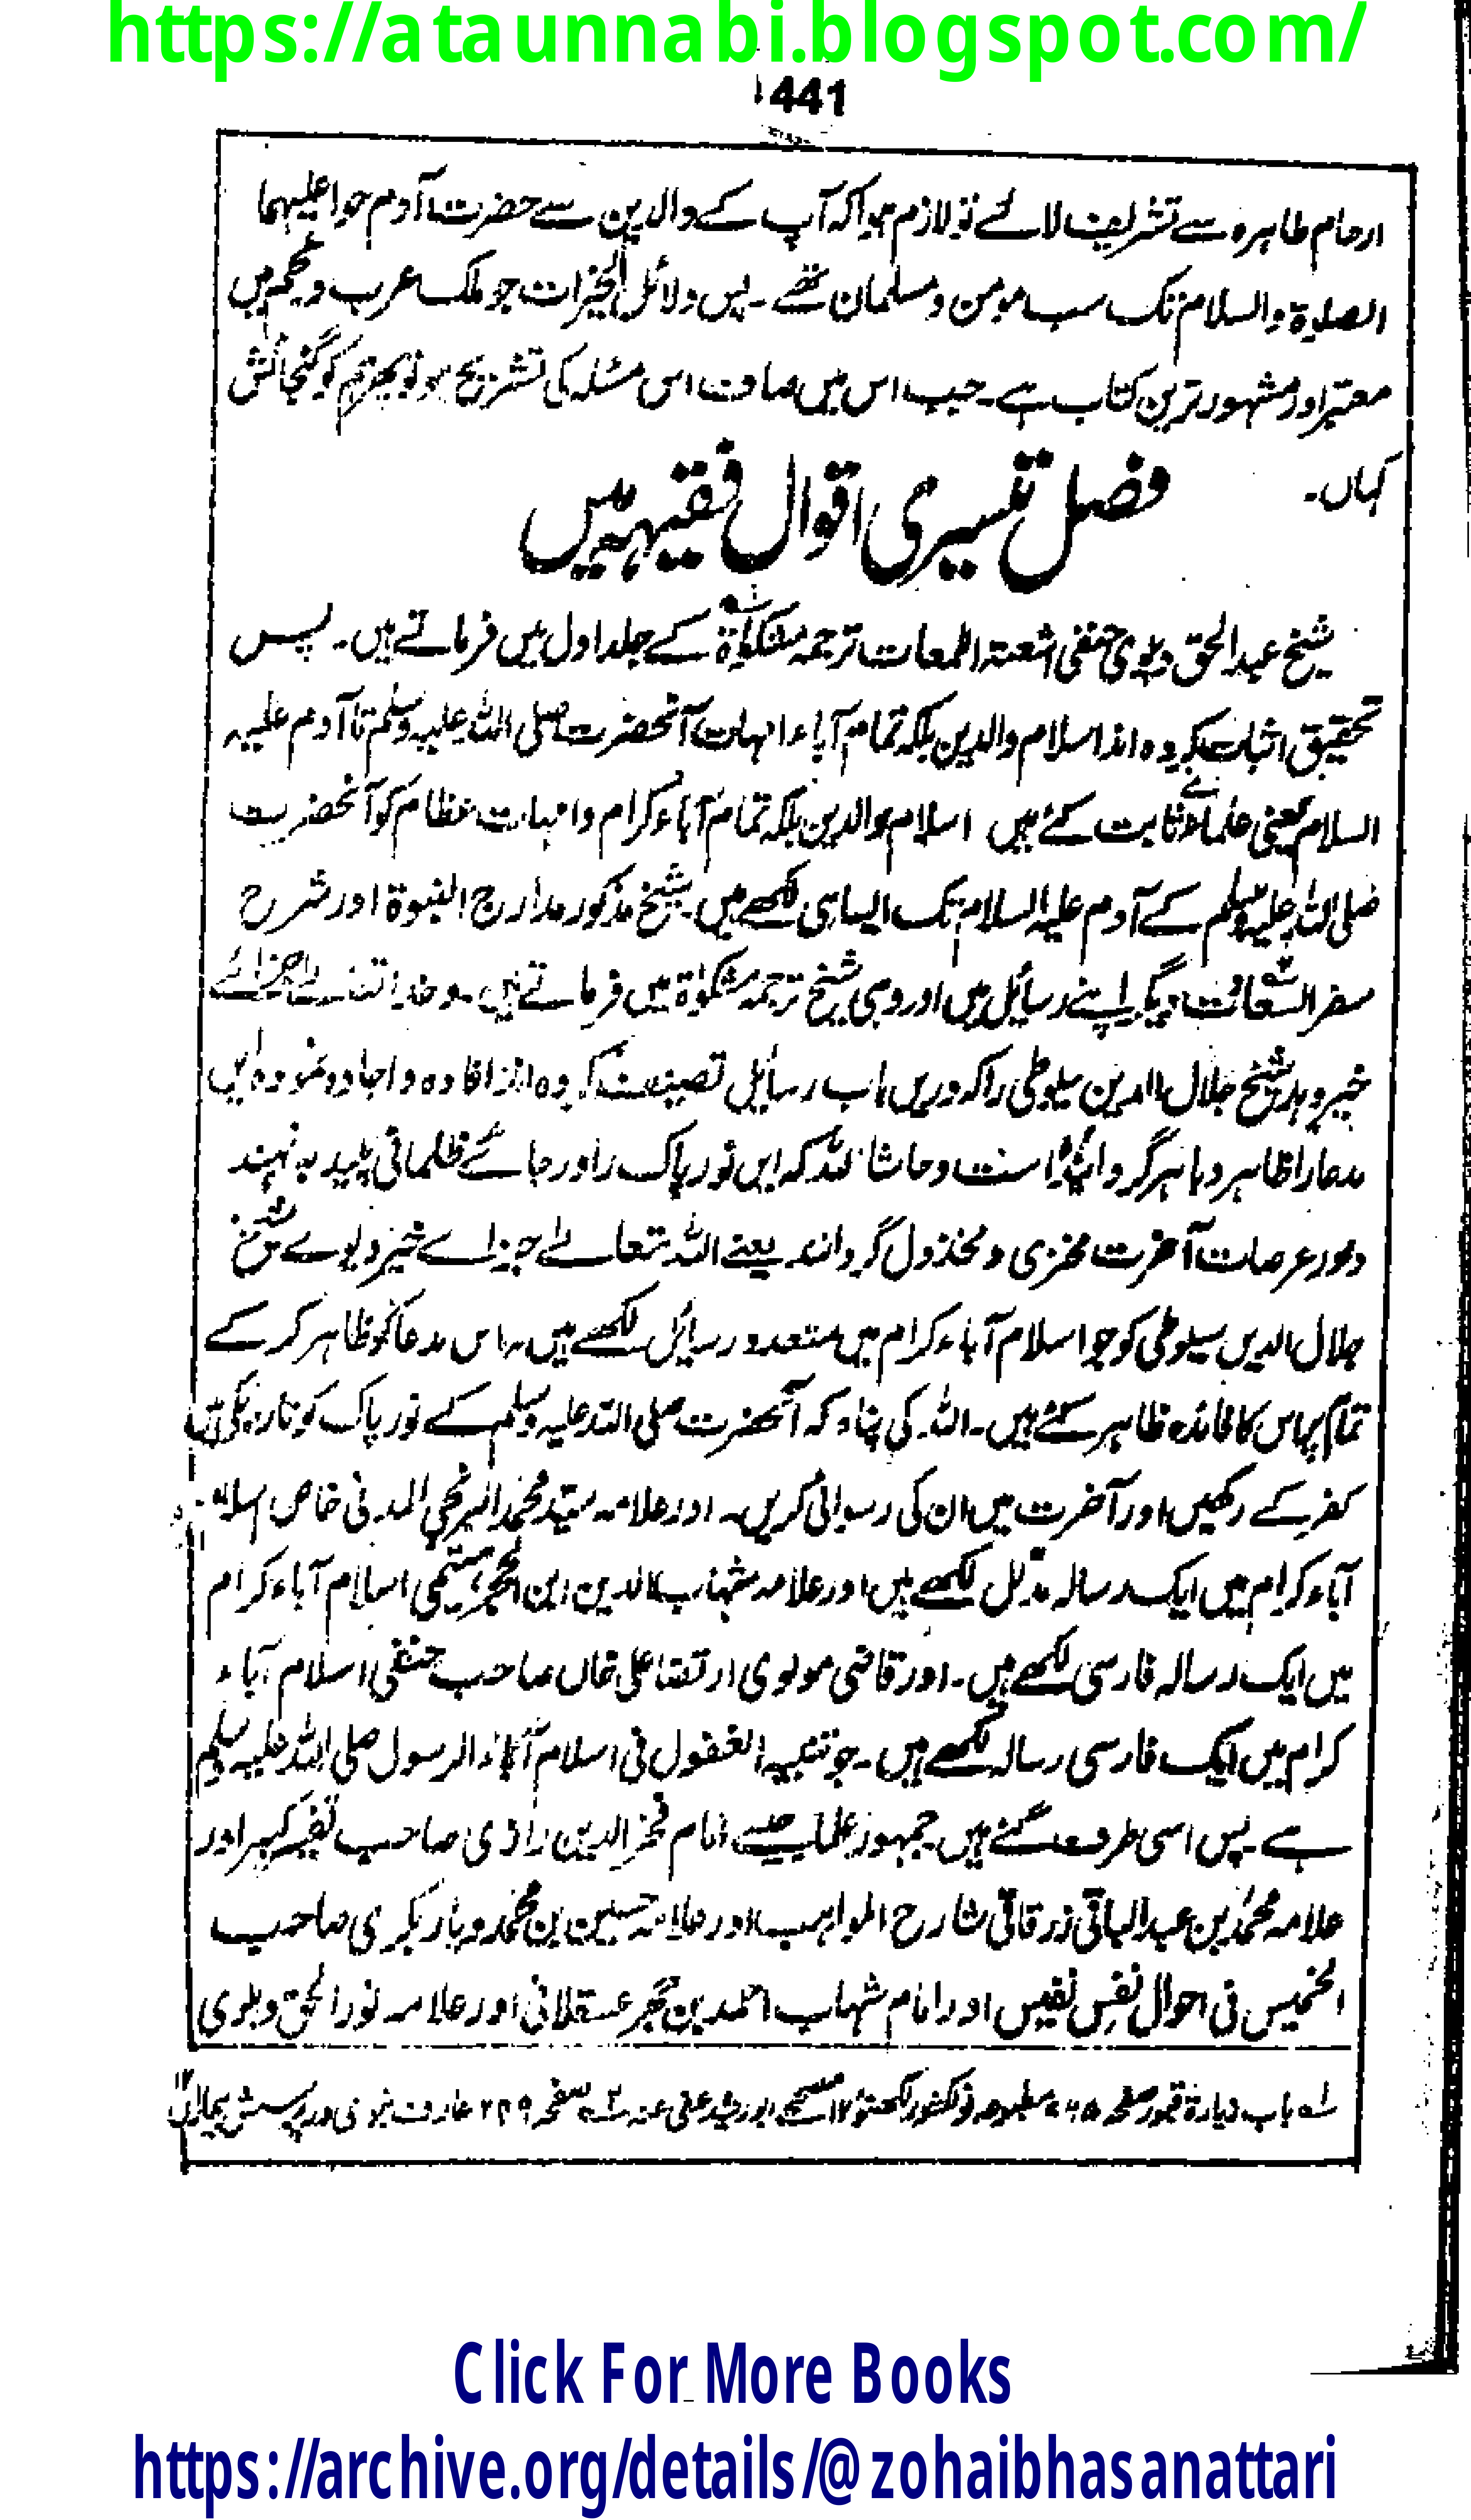 https://ataunnabi.blogspot.com/
441
ارحام طاہرہ سے تشریف لائے تو لازم ہوا کہ آپ کے والدین سے حضرت آدم حوا علیہما
الصلوٰۃ والسلام تک سب مومن و مسلمان تھے۔ پس دلائل الخیرات جو ملک عرب و عجم میں
معتبر اور مشہور ترین کتاب ہے۔ جب اس میں صاف اس مسئلہ کی تشریح ہو تو پھر تم کو گنجائش
کہاں۔
فصل تیسری اقوال فقیہہ میں
شیخ عبد الحق دہلوی حنفی اشعتہ اللمعات ترجمہ مشکوٰۃ کے جلد اول میں فرماتے ہیں۔ پس
تحقیق اثبات کردہ اند اسلام والدین بلکہ تمام آباء امہات آنحضرت صلی اللہ علیہ وسلم تا آدم علیہ
السلام یعنی علماء ثابت کئے ہیں اسلام والدین بلکہ تمام آباء کرام و امہات عظام کو آنحضرت
صلی اللہ علیہ وسلم کے آدم علیہ السلام تک ایسا ہی لکھے ہیں۔ شیخ مذکور مدارج النبوۃ اور شرح
سفر السعادت دیگر اپنے رسائل میں اور وہی شیخ ترجمہ مشکوٰۃ میں فرماتے ہیں۔ و خدا تعالے جزائے
خیر دہد شیخ جلال الدین سیوطی را کہ دریں باب رسایل تصنیف کردہ اند افادہ و اجادہ نمودہ ایں
مدعا را ظاہر و باہر گردانیدہ است و حاشا للہ کہ ایں نور پاک را در جائے ظلمانی پلید بہ نہند
و در عرصات آخرت مخزی و مخذول گردانند یعنے اللہ تعالے جزاے خیر دیوے شیخ
جلال الدیں سیوطی کو جو اسلام آباء کرام میں متعدد رسایل لکھے ہیں، اس مدعا کو ظاہر کر کے
تمام پر اس کا فائدہ ظاہر کئے ہیں۔ اللہ کی پناہ کہ آنحضرت صلی اللہ علیہ وسلم کے نور پاک کو تاریکی میں
کفر کے رکھیں اور آخرت میں ان کی رسوائی کریں۔ اور علامہ سید محمد البرزنجی المدنی خاص اسلام
آباء کرام میں ایک رسالہ مدلل لکھے ہیں اور علامہ شہاب الدین ابن الحجر ہیتمی اسلام آباء کرام
میں ایک رسالہ فارسی لکھے ہیں۔ اور قاضی مولوی ارتضا علی خاں صاحب حنفی اسلام آباء
کرام میں ایک فارسی رسالہ لکھے ہیں۔ جو تنبیہ الغفول فی اسلام آباء الرسول صلی اللہ علیہ وسلم
ہے۔ پس اسی طرف گئے ہیں جمہور علما جیسے امام فخر الدین رازی صاحب تفسیر کبیر اور
علامہ محمد بن عبد الباقی زرقانی شارح المواہب اور علامہ حسین بن محمد دیار بکری صاحب
الخمیس فی احوال نفس نفیس اور امام شہاب احمد بن حجر عسقلانی اور علامہ نور الحق دہلوی
لہ باب زیارۃ قبور صفحہ ۷۶۵ مطبوعہ نولکشور لکھنؤ ابو رشید عفی عنہ صفحہ ۲۴۹
Click For More Books
https://archive.org/details/@zohaibhasanattari